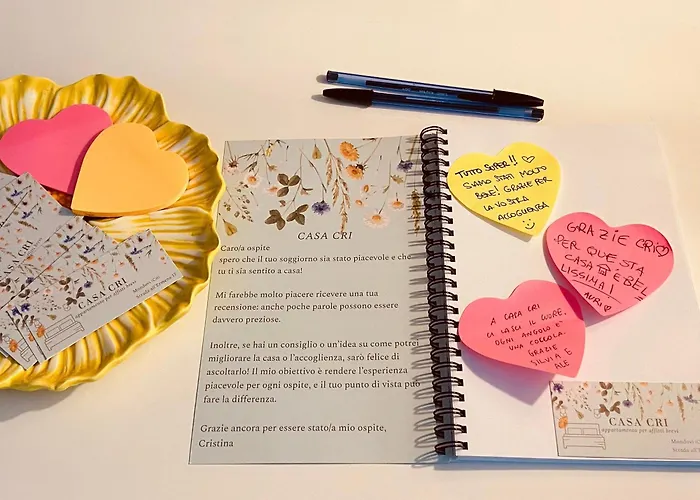 CASA CRI
Caro/a ospite
spero che il tuo soggiorno sia stato piacevole e che
tu ti sia sentito a casa!
Mi farebbe molto piacere ricevere una tua
recensione: anche poche parole possono essere
davvero preziose.
Inoltre, se hai un consiglio o un'idea su come potrei
migliorare la casa o l'accoglienza, sarò felice di
ascoltarlo! Il mio obiettivo è rendere l'esperienza
piacevole per ogni ospite, e il tuo punto di vista può
fare la differenza.
Grazie ancora per essere stato/a mio ospite,
Cristina
TUTTO SUPER!!
SIAMO STATI MOLTO
BENE! GRAZIE PER
LA VOSTRA
ACCOGLIENZA
GRAZIE CRI
PER QUESTA
CASA È BEL
LISSIMA!
A CASA CRI
CI LASCI IL CUORE,
OGNI ANGOLO E'
UNA COCCOLA.
GRAZIE
SILVIA E
ALE
CASA CRI
appartamento per affitti brevi
Mondovì
Strada
CASA CRI
appartamento per affitti brevi
Mondovì, Cn
CASA CRI
CASA CRI